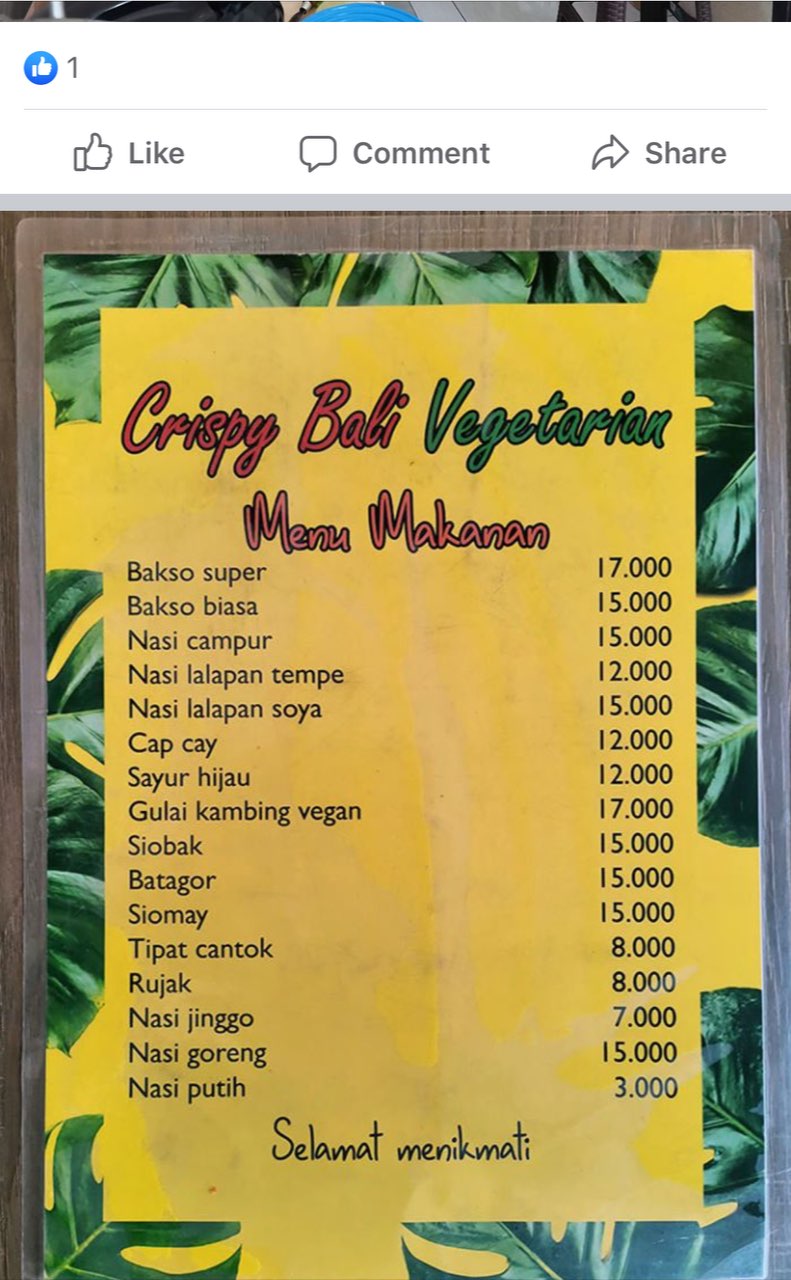 1
Like Comment Share
Crispy Bali Vegetarian
Menu Makanan
Bakso super 17.000
Bakso biasa 15.000
Nasi campur 15.000
Nasi lalapan tempe 12.000
Nasi lalapan soya 15.000
Cap cay 12.000
Sayur hijau 12.000
Gulai kambing vegan 17.000
Siobak 15.000
Batagor 15.000
Siomay 15.000
Tipat cantok 8.000
Rujak 8.000
Nasi jinggo 7.000
Nasi goreng 15.000
Nasi putih 3.000
Selamat menikmati